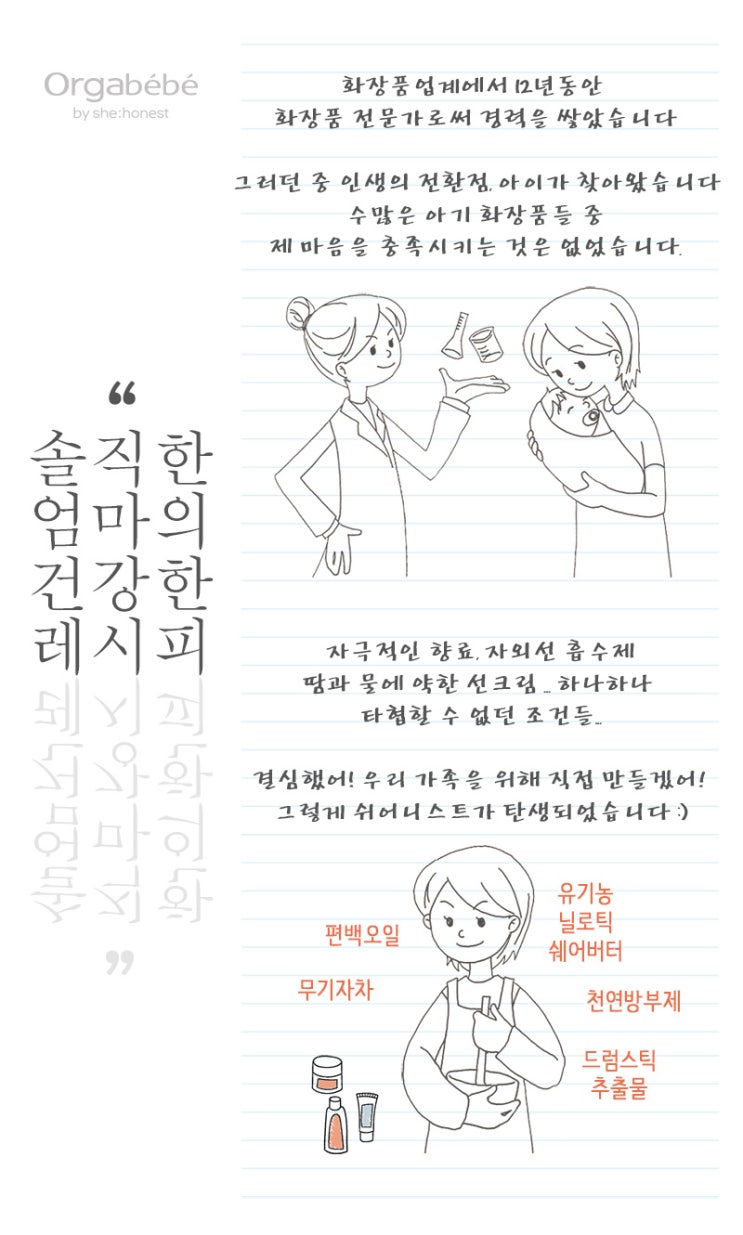 Orgabébé
by she:honest
“
솔직한
엄마의
건강한
레시피
”
화장품업계에서 12년동안
화장품 전문가로써 경력을 쌓았습니다
그러던 중 인생의 전환점, 아이가 찾아왔습니다
수많은 아기 화장품들 중
제 마음을 충족시키는 것은 없었습니다.
자극적인 향료, 자외선 흡수제
땀과 물에 약한 선크림 ... 하나하나
타협할 수 없던 조건들...
결심했어! 우리 가족을 위해 직접 만들겠어!
그렇게 쉬어니스트가 탄생되었습니다 :)
편백오일
무기자차
유기농
닐로틱
쉐어버터
천연방부제
드럼스틱
추출물